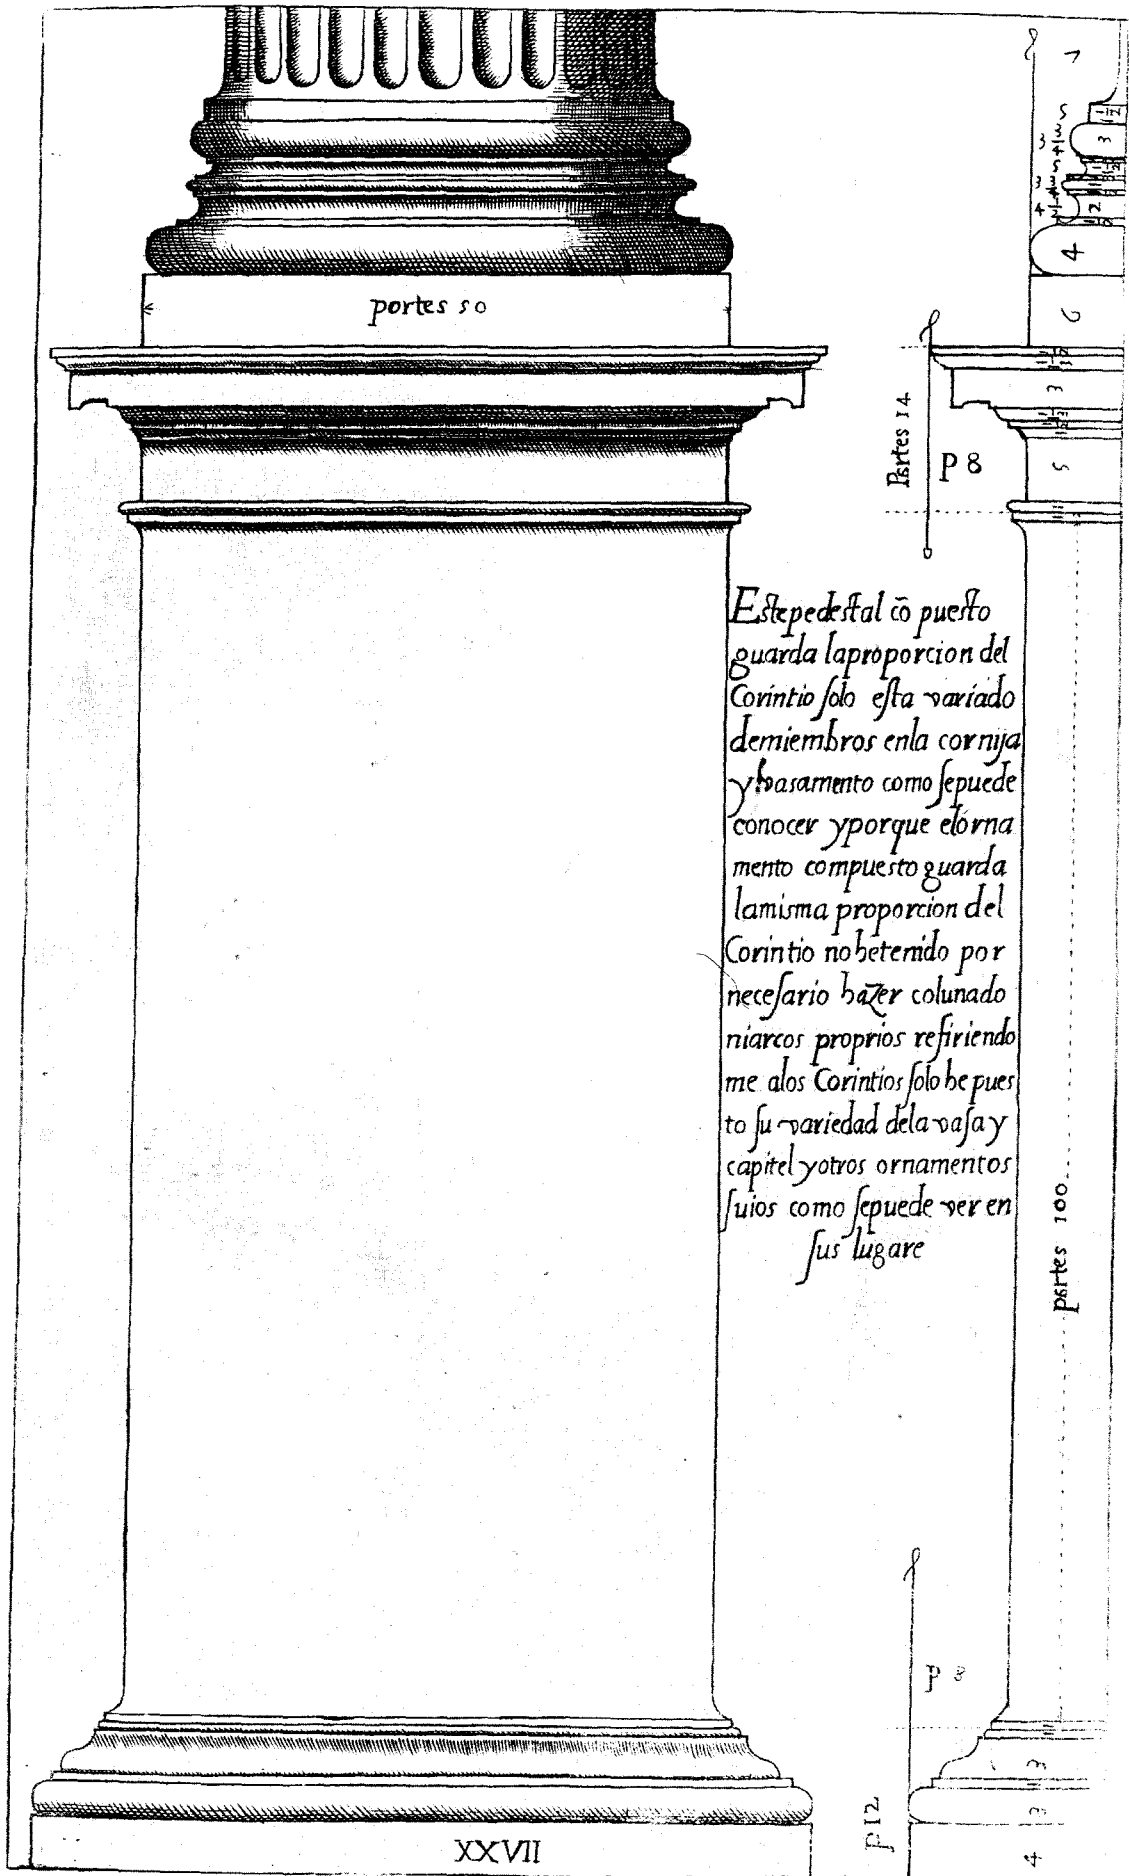 portes 50
Partes 14
P 8
Este pedestal cō puesto
guarda la proporcion del
Corintio ſolo eſta variado
de miembros en la cornija
y basamento como ſepuede
conocer y porque el orna
mento compuesto guarda
la misma proporcion del
Corintio no he tenido por
neceſario hazer colunado
ni arcos proprios refiriendo
me a los Corintios ſolo he pues
to ſu variedad de la vaſa y
capitel y otros ornamentos
ſuios como ſepuede ver en
ſus lugare
partes 100
P 8
P 12
XXVII
7
3
4
6
3
5
3
3
4